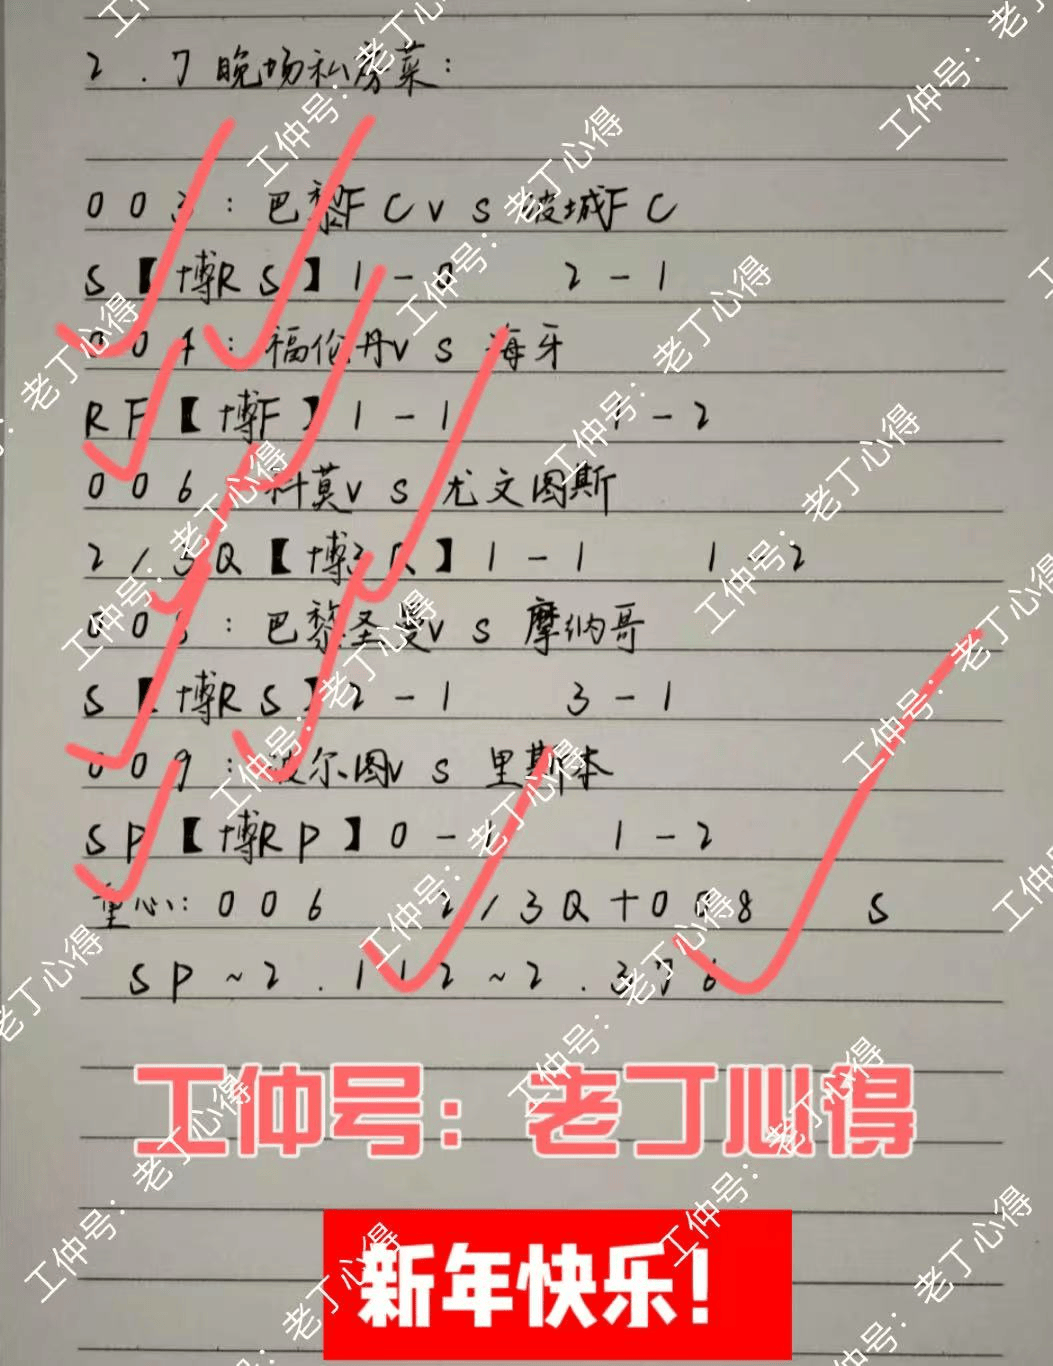 2.7晚场私房菜：
003：巴黎FCvs波城FC
S【博RS】1-0 2-1
004：福伦丹vs海牙
RF【博F】1-1 1-2
006 科莫vs尤文图斯
2/3Q【博2Q】1-1 1-2
008：巴黎圣曼vs摩纳哥
S【博RS】2-1 3-1
009：波尔图vs里斯本
SP【博RP】0-1 1-2
重心：006 2/3Q+008 S
SP~2.112~2.376
工仲号：老丁心得
新年快乐！